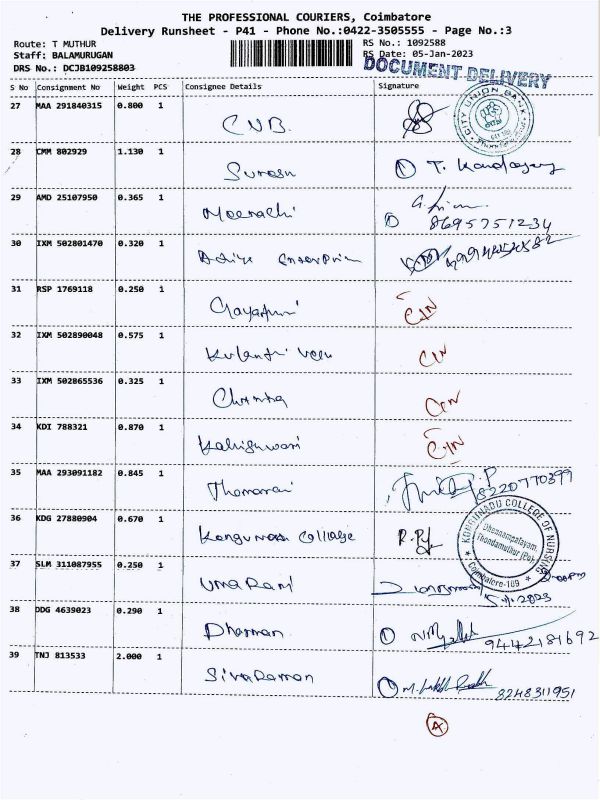 THE PROFESSIONAL COURIERS, Coimbatore
Delivery Runsheet - P41 - Phone No.:0422-3505555 - Page No.:3
Route: T MUTHUR
RS No.: 1092588
Staff: BALAMURUGAN
RS Date: 05-Jan-2023
DRS No.: DCJB109258803
DOCUMENT DELIVERY
S No Consignment No Weight PCS Consignee Details Signature
27 MAA 291840315 0.800 1 CUB.
CITY UNION BANK
28 CMM 802929 1.130 1 Suresh T.
29 AMD 25107950 0.365 1 Meenachi
8695751234
30 IXM 502801470 0.320 1
31 RSP 1769118 0.250 1 Gayathri
32 IXM 502890048 0.575 1
33 IXM 502865536 0.325 1 Chitra
34 KDI 788321 0.870 1
35 MAA 293091182 0.845 1 Thamarai
8220770399
36 KDG 27880904 0.670 1 College
KONGUNADU COLLEGE OF NURSING
Thondamuthur (Po),
Coimbatore-109
37 SLM 311087955 0.250 1 Uma Rani
38 DDG 4639023 0.290 1 Dharman
9442181692
39 TNJ 813533 2.000 1 Sivaraman
8248311951
A